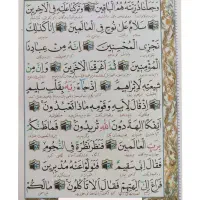 وَجَعَلْنَا ذُرِّيَّتَهُ هُمُ الْبَاقِينَ وَتَرَكْنَا عَلَيْهِ فِي الْآخِرِينَ
سَلَامٌ عَلَىٰ نُوحٍ فِي الْعَالَمِينَ إِنَّا كَذَٰلِكَ
نَجْزِي الْمُحْسِنِينَ إِنَّهُ مِنْ عِبَادِنَا
الْمُؤْمِنِينَ ثُمَّ أَغْرَقْنَا الْآخَرِينَ وَإِنَّ مِنْ
شِيعَتِهِ لَإِبْرَاهِيمَ إِذْ جَاءَ رَبَّهُ بِقَلْبٍ سَلِيمٍ
إِذْ قَالَ لِأَبِيهِ وَقَوْمِهِ مَاذَا تَعْبُدُونَ
أَئِفْكًا آلِهَةً دُونَ اللَّهِ تُرِيدُونَ فَمَا ظَنُّكُمْ
بِرَبِّ الْعَالَمِينَ فَنَظَرَ نَظْرَةً فِي النُّجُومِ
فَقَالَ إِنِّي سَقِيمٌ فَتَوَلَّوْا عَنْهُ مُدْبِرِينَ
فَرَاغَ إِلَىٰ آلِهَتِهِمْ فَقَالَ أَلَا تَأْكُلُونَ مَا لَكُمْ